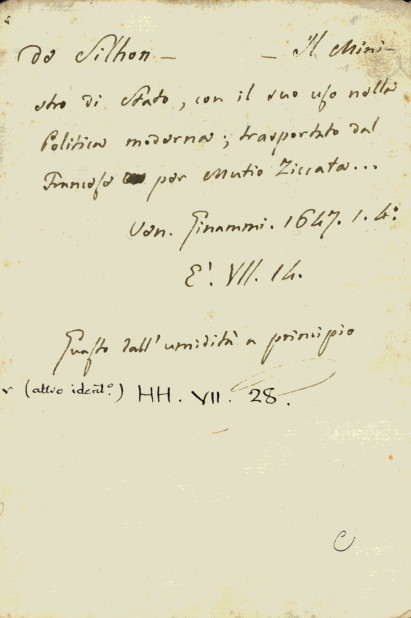 De Silhon — — Il Mini-
stro di Stato, con il suo uso nella
Politica moderna; trasportato dal
Francese per Mutio Ziccata...
Ven. Ginammi. 1647. 1. 4.°
E'. VII. 14.
Guasto dall'umidità a principio
v (altro ident.°) HH. VII. 28.
C